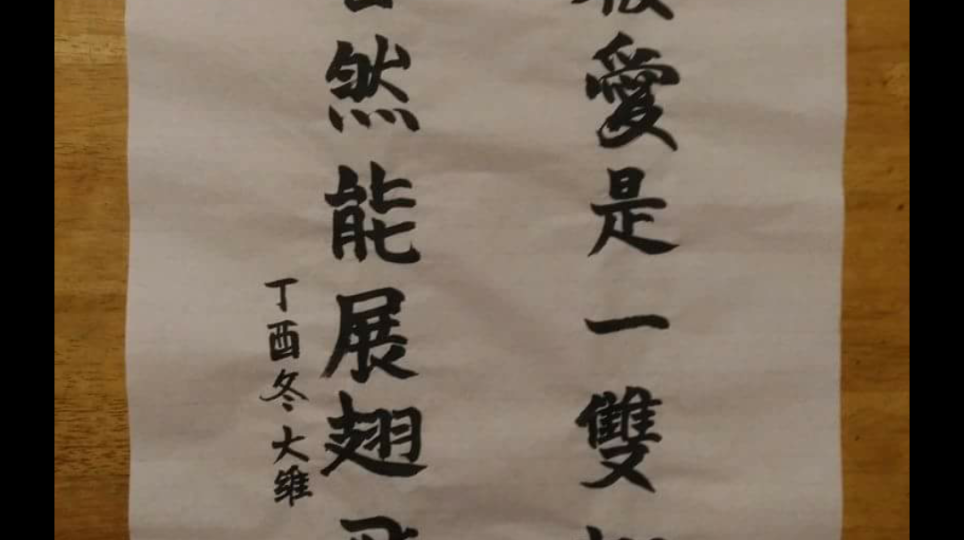 愛是一雙
然能展翅
丁酉冬大维